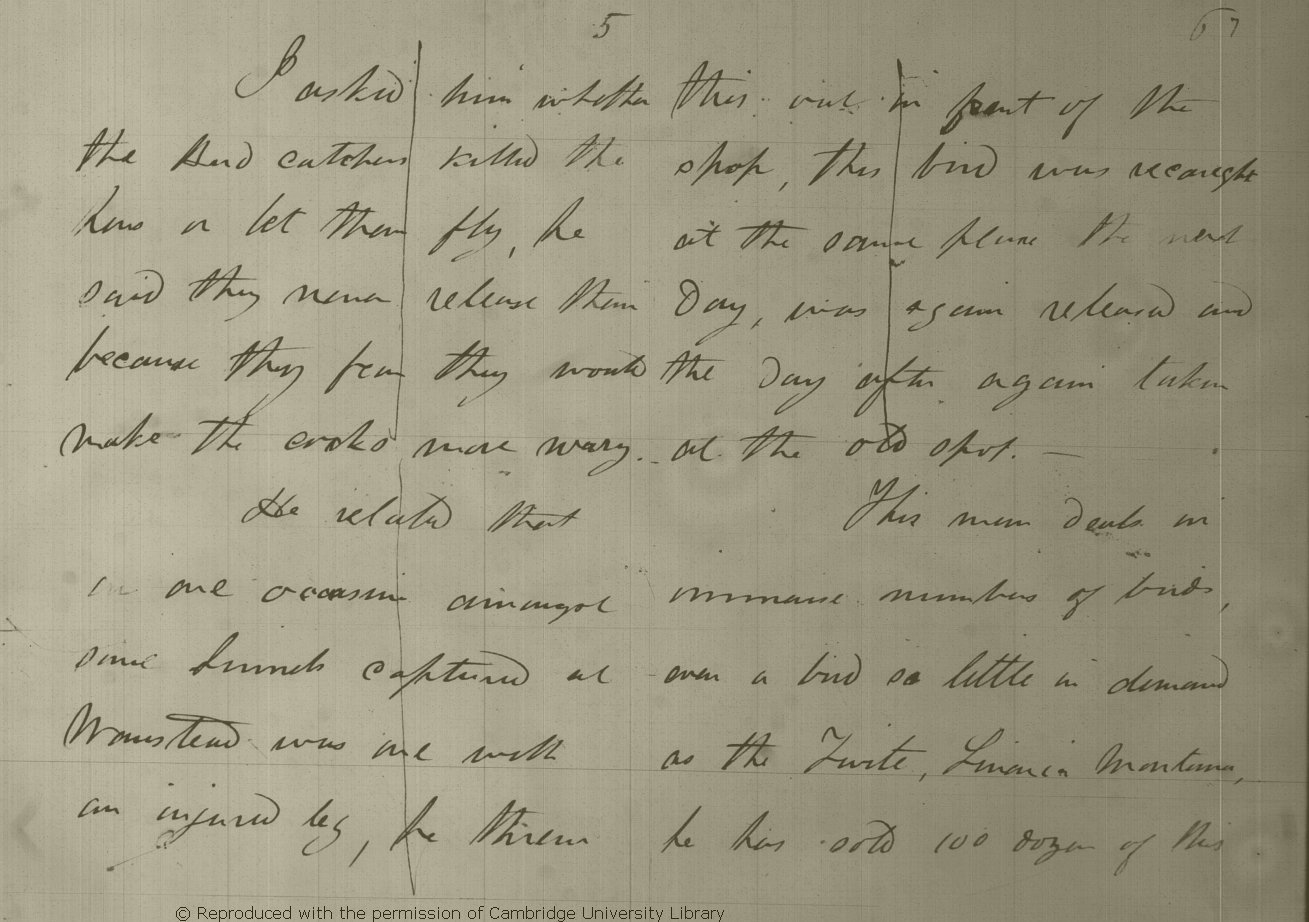 5
67
I asked him whether
the Bird catchers killed the
hens or let them fly, he
said they never release them
because they fear they would
make the cocks more wary.
He related that
on one occasion amongst
some Linnets captured at
Wanstead was one with
an injured leg, he threw
this out in front of the
shop, this bird was recaught
at the same place the next
day, was again released and
the day after again taken
at the old spot. —
This man deals in
immense numbers of birds,
even a bird so little in demand
as the Twite, Linaria Montana,
he has sold 100 dozen of this
© Reproduced with the permission of Cambridge University Library